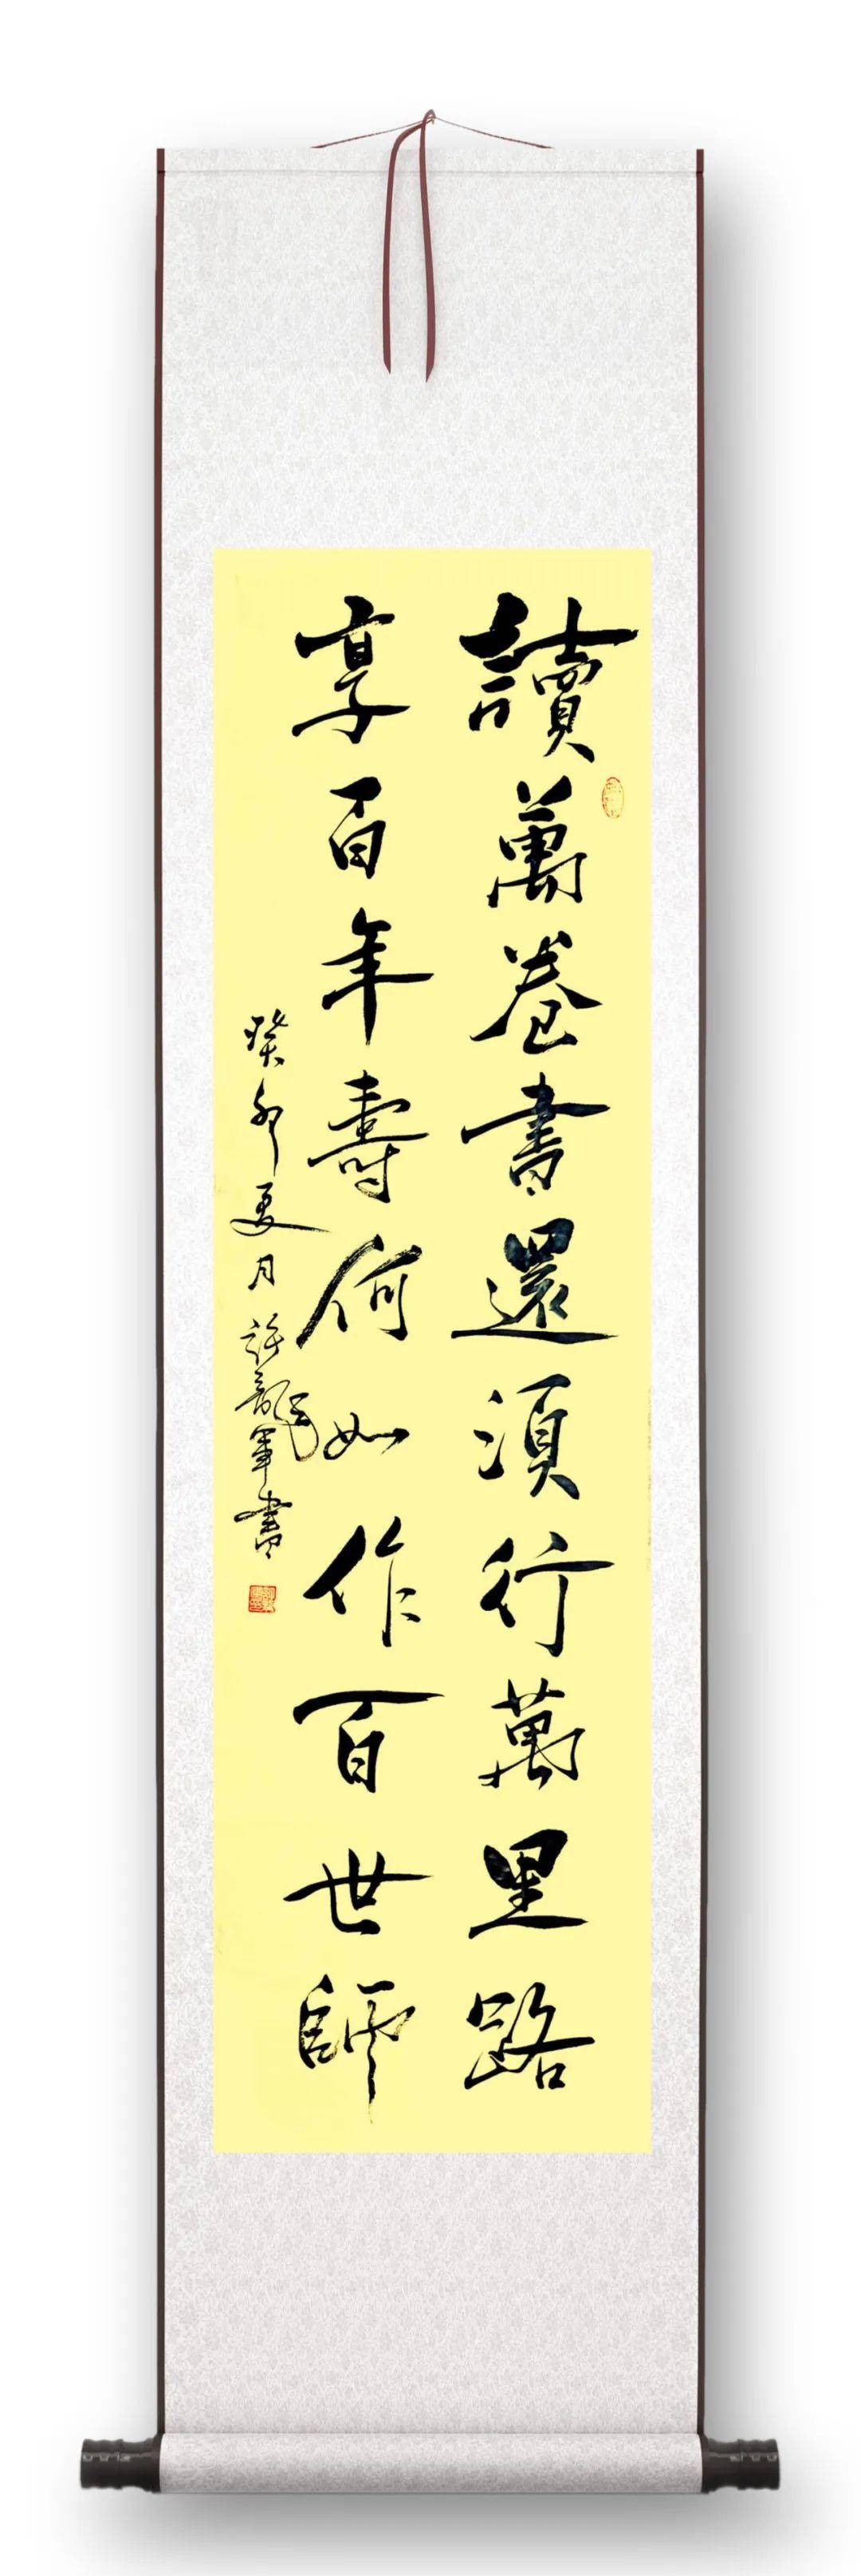 讀萬卷書還須行萬里路
享百年壽何如作百世師
癸卯夏月許龍軍書